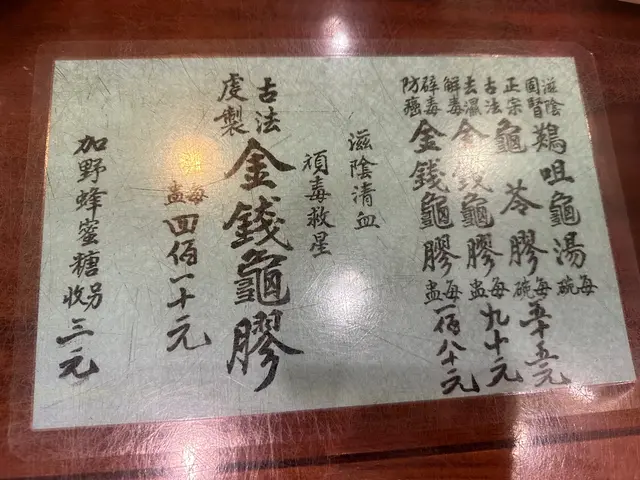 滋陰固腎 鷄咀龜湯 每碗
正宗 龜苓膠 每碗五十五元
古法去濕解毒 金錢龜膠 每盅九十元
毒防癌 金錢龜膠 每盅一佰八十元
滋陰清血
頑毒救星
古法虔製 金錢龜膠
每盅四佰一十元
加野蜂蜜糖另收三元